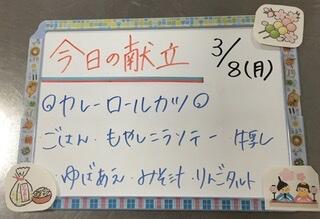 今日の献立 3/8(月)
◎カレーロールカツ◎
ごはん・もやしニラソテー 牛乳
・ゆばあえ・みそ汁・りんごタルト